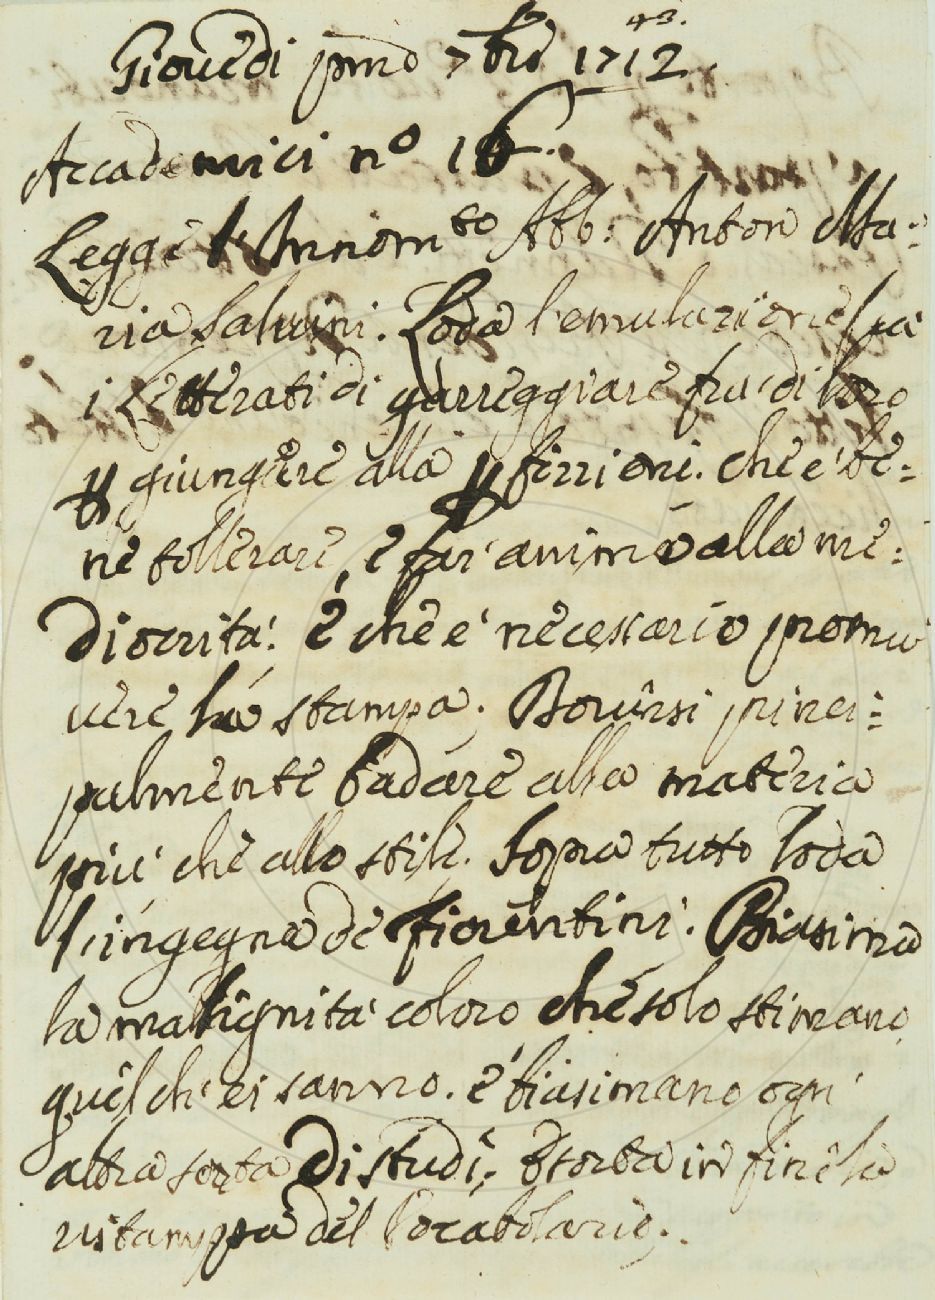 43.
Giovedi pmo 7bre 1712.
Accademici nº 16.
Legge l'Innomto Abb: Anton Ma=
ria Salvini. Loda l'emulazione fra
i Letterati di garreggiare fra di loro
p giungere alla pfezzioni. che e' be=
ne tollerare, e far' animo alla me=
diocrità. e che e' necessario promuo
vere la stampa. Doversi princi=
palmente badare alla materia
piu' che allo stile. Sopra tutto loda
l'ingegna de fiorentini. Biasima
la malignita' coloro che solo stimano
quel ch' ei sanno. e biasimano ogni
altra sorta di studi; Esorta in fine la
ristampa del Vocabolario.